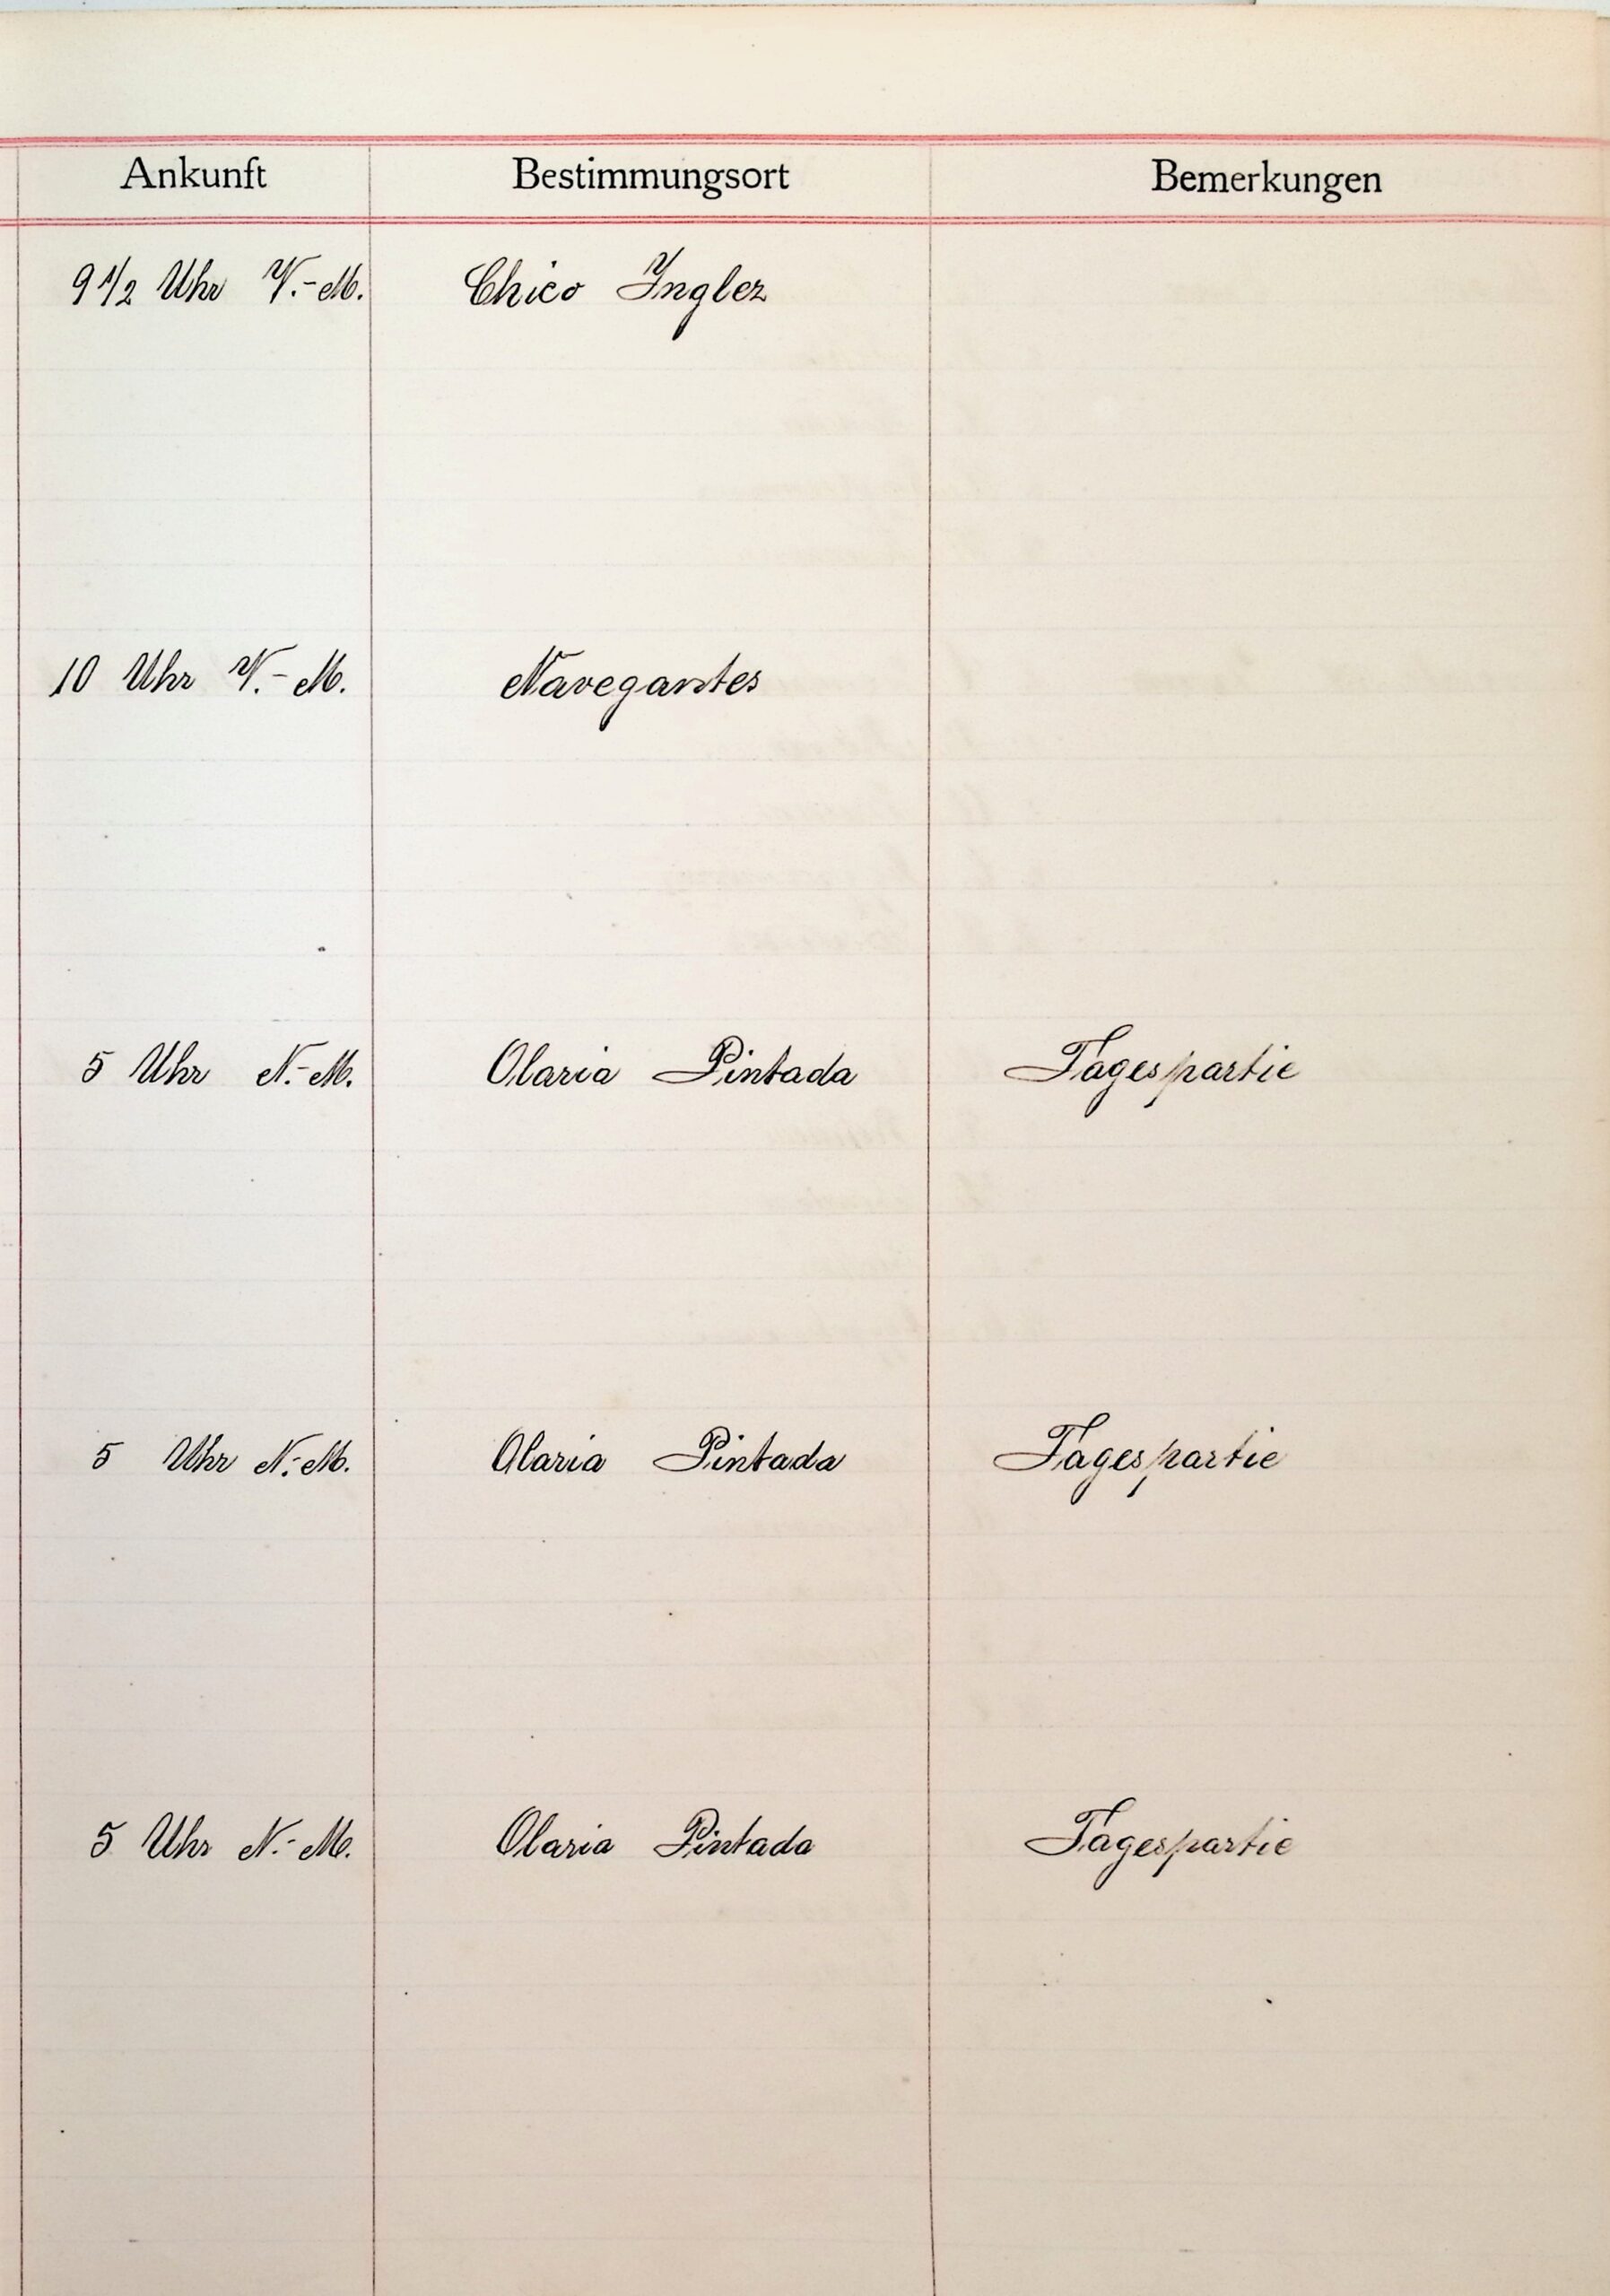 Ankunft Bestimmungsort Bemerkungen
9 1/2 Uhr V.-M. Chico Inglez
10 Uhr V.-M. Navegantes
5 Uhr N.-M. Olaria Pintada Tagespartie
5 Uhr N.-M. Olaria Pintada Tagespartie
5 Uhr N.-M. Olaria Pintada Tagespartie